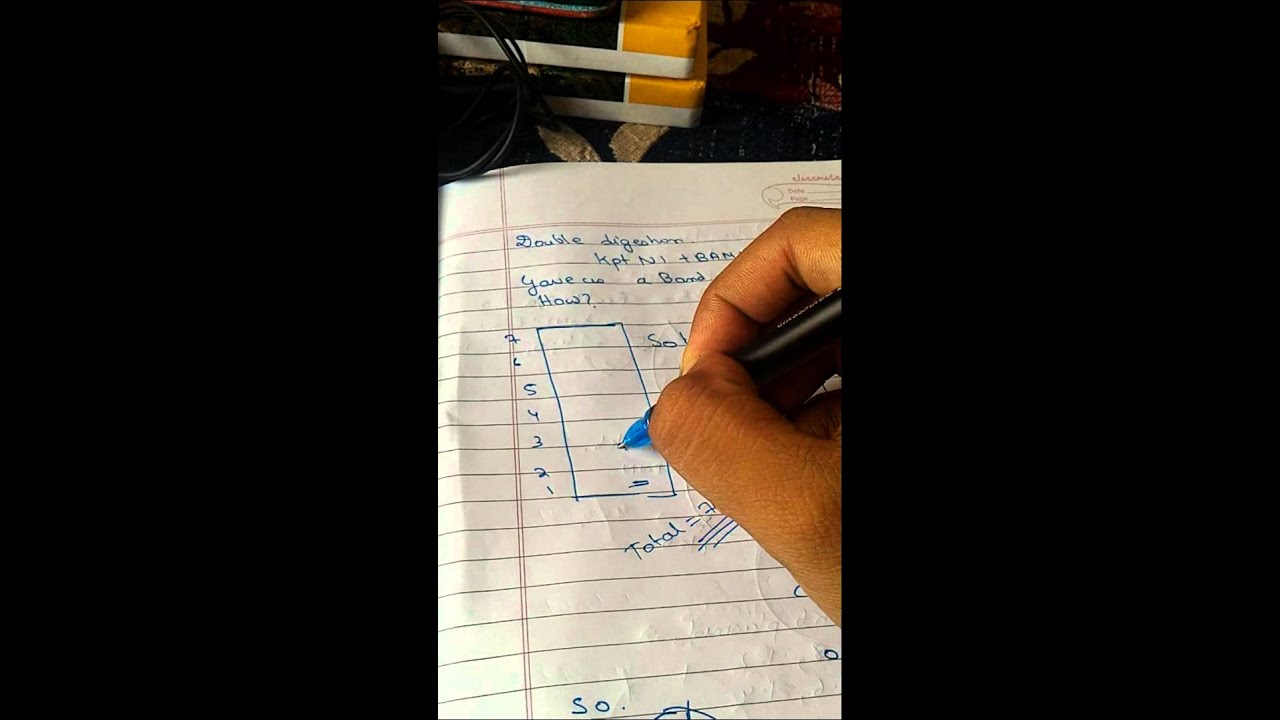 classmate
Date
Page
Double digestion.
Kpt N1 + BAM
Gave us a Band
How?
7
6
5
4
3
2
1
Total = 7
So.